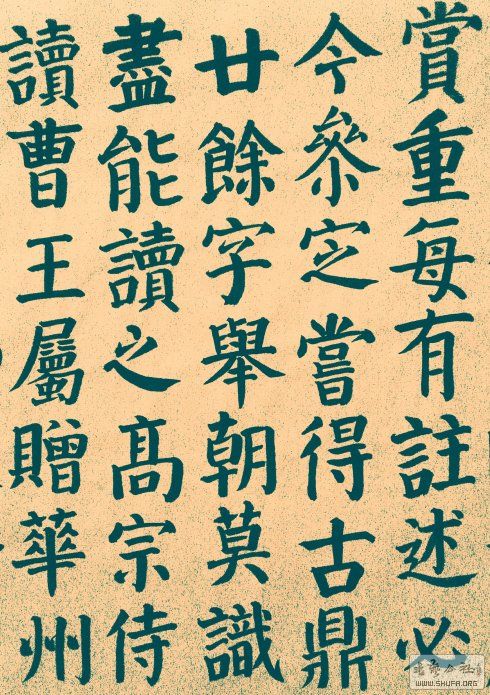 賞重每有註述必
令參定嘗得古鼎
廿餘字舉朝莫識
盡能讀之高宗侍
讀曹王屬贈華州
WWW.SHUFA.ORG